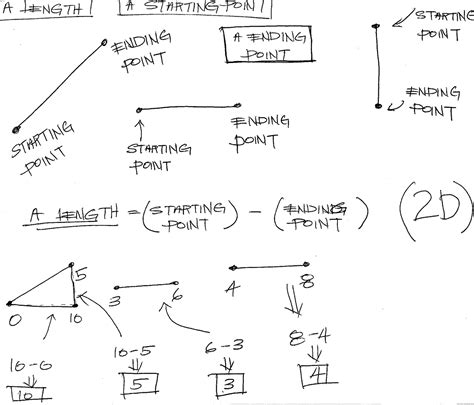 A LENGTH
A STARTING POINT
ENDING
POINT
STARTING
POINT
A ENDING
POINT
STARTING
POINT
ENDING
POINT
STARTING
POINT
ENDING
POINT
A LENGTH = (STARTING POINT) - (ENDING POINT) (2D)
0
5
10
3
6
4
8
10-0
10
10-5
5
6-3
3
8-4
4